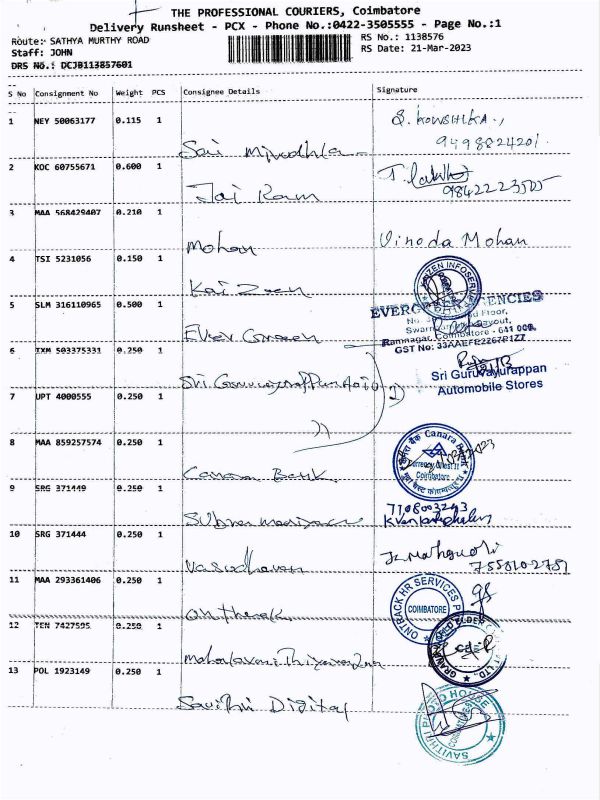 THE PROFESSIONAL COURIERS, Coimbatore
Delivery Runsheet - PCX - Phone No.:0422-3505555 - Page No.:1
Route: SATHYA MURTHY ROAD
RS No.: 1138576
Staff: JOHN
RS Date: 21-Mar-2023
DRS No.: DCJB113857601
S No Consignment No Weight PCS Consignee Details Signature
1 NEY 50063177 0.115 1
S. KOWSHIKA.,
9498824201.
2 KOC 60755671 0.600 1 Jai Ram
9842223505
3 MAA 568429407 0.210 1 Mohan Vinoda Mohan
4 TSI 5231056 0.150 1 Kai Zeen
KAIZEN INFOSER
5 SLM 316110965 0.500 1 Ever Green
EVERG ENCIES
Floor,
Ramnagar, Coimbatore - 641 009.
GST No: 33AAEFE2267P1Z7
6 IXM 503375331 0.250 1
Sri Guruvayurappan
Automobile Stores
7 UPT 4000555 0.250 1 ,,
8 MAA 859257574 0.250 1 Canara Bank
Canara Bank
Currency Chest II
Coimbatore
9 SRG 371449 0.250 1
7708003293
10 SRG 371444 0.250 1 Vasudhavan
7558102781
11 MAA 293361406 0.250 1 Ontherak
ONTRACK HR SERVICES
COIMBATORE
12 TEN 7427595 0.250 1
13 POL 1923149 0.250 1 Savithri Digital
SAVITHRI PHOTO HOUSE